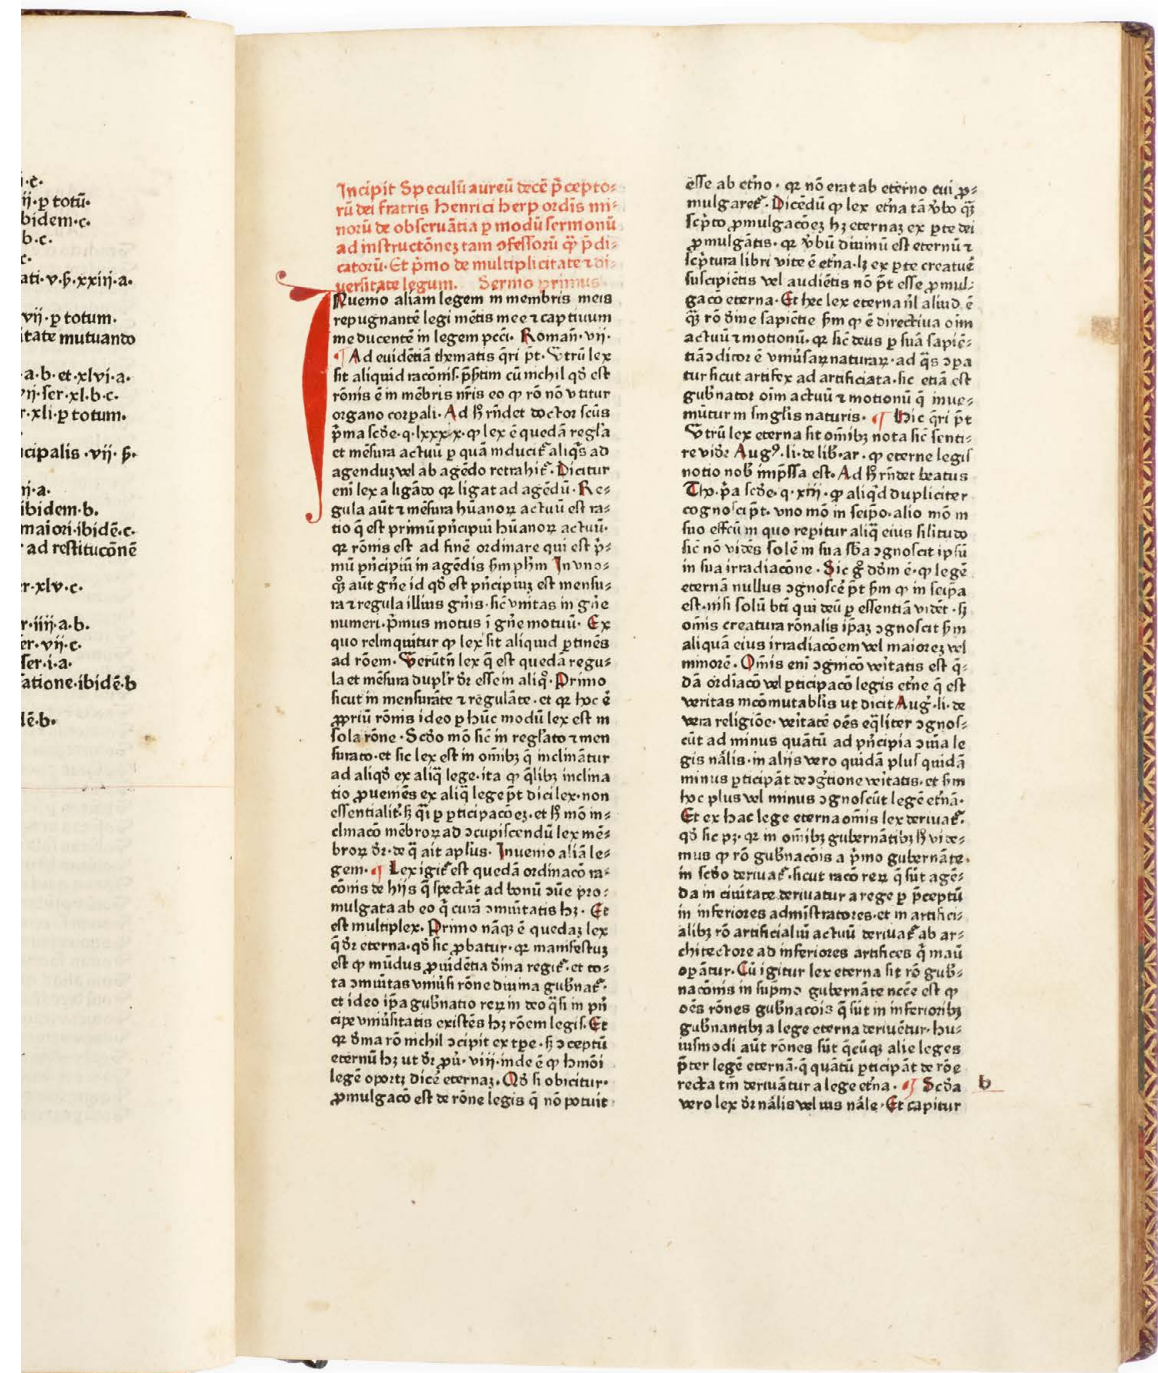 i·c̄·
ij·ꝑ totū·
bidem·c·
b·c·
c·
ati·v·p̄·xxiij·a·
vij·ꝑ totum·
itate mutuando
·a·b·et·xlvj·a·
vij·ſer·xl·b·c·
r·xli·ꝑ totum·
cipalis·vij·p̄·
nj·a·
ibidem·b·
maiori·ibidē·c·
ad reſtitucōnē
r·xlv·c·
r·iiij·a·b·
er·vij·c·
ſer·i·a·
atione·ibidē·b
dē·b·
Incipit Speculū aureū decē p̄cepto⸗
rū dei fratris Henrici herp ordīs mi⸗
norū de obſeruātia ꝑ modū ſermonū
ad inſtructōnē tam ꝯfeſſorū qͣꝫ p̄di⸗
catorū·Et p̄mo de multiplicitate ⁊ di⸗
uerſitate legum. Sermo primus
INuenio aliam legem in membris meis
repugnantē legi mētis mee ⁊ captiuum
me ducentē in legem pcc̄i· Roman̄·vij·
¶ Ad euidētiā thematis q̄ri pt̄· Vtrū lex
ſit aliquid racōnis·p̄ſertim cū nichil qd̄ eſt
rōnis ē in mēbris nr̄is eo ꝙ rō nō vtitur
organo corꝑali· Ad hͦ rn̄det doctor ſcūs
p̄ma ſcd̄e·q·lxxxx·ꝙ lex ē quedā regl̄a
et mēſura actuū ꝑ quā inducit᷑ aliqͥs ad
agenduꝫ vel ab agēdo retrahit᷑· Dicitur
eni lex a ligādo qꝛ ligat ad agēdū· Re⸗
gula aūt ⁊ mēſura hūanoꝝ actuū eſt ra⸗
tio q̄ eſt primū pn̄cipiū hūanoꝝ actuū·
qꝛ rōnis eſt ad finē ordinare qui eſt p̄⸗
mū pn̄cipiū in agēdis ẜm ph̄m· In vno⸗
qͦꝫ aūt gn̄e id qd̄ eſt pn̄cipiuꝫ eſt menſu⸗
ra ⁊ regula illius gn̄is·ſic̄ vnitas in gn̄e
numeri·p̄mus motus i gn̄e motuū· Ex
quo relinquitur ꝙ lex ſit aliquid ꝑtinēs
ad rōem· Verūtn̄ lex q̄ eſt quedā regu⸗
la et mēſura dupl̄r dr̄ eſſe in aliqͦ· Primo
ſicut in menſurāte ⁊ regulāte·et qꝛ hoc ē
ꝓpriū rōnis ideo ꝑ hūc modū lex eſt in
ſola rōne· Scd̄o mō ſic̄ in regl̄ato ⁊ men
ſurato·et ſic lex eſt in om̄ibꝫ q̄ inclināntur
ad aliqͦd ex aliq̄ lege·ita ꝙ q̄libꝫ inclina
tio ꝓueniēs ex aliq̄ lege pt̄ dici lex·non
eſſentialit᷑·ſꝫ qͣi ꝑ ꝑticipacōeꝫ·et hͦ mō in⸗
clinacō mēbroꝝ ad ꝯcupiſcendū lex mē⸗
broꝝ dr̄·de q̄ ait apl̄us· Inuenio aliā le⸗
gem·¶ Lex igit᷑ eſt quedā ordinacō ra⸗
cōnis de hijs q̄ ſpectāt ad bonū ꝯūe pro⸗
mulgata ab eo q̄ curā ꝯmūitatis hꝫ· Et
eſt multiplex· Primo nāqꝫ ē quedaꝫ lex
q̄ dr̄ eterna·qd̄ ſic ꝓbatur·qꝛ manifeſtuꝫ
eſt ꝙ mūdus ꝓuidētia diuina regit᷑·et to⸗
ta ꝯmūitas vniuſi rōne diuina gub̄nat᷑·
et ideo ip̄a gub̄natio reꝝ in deo qͣſi in pn̄
cipe vniūſitatis exiſtēs hꝫ rōem legiſ· Et
qꝛ diuina rō nichil ꝯcipit ex tꝑe·ſꝫ ꝯceptū
eternū hꝫ ut dr̄ ꝓū·viij·inde ē ꝙ hm̄oi
legē oportꝫ dicē eternaꝫ· Qd̄ ſi obicitur·
ꝓmulgacō eſt de rōne legis q̄ nō potuit
eſſe ab et̄no·qꝛ nō erat ab eterno cui ꝓ⸗
mulgaret᷑· Dicēdū ꝙ lex et̄na tā v̄bo qͣꝫ
ſcp̄to ꝓmulgacōeꝫ hꝫ eternaꝫ ex ꝑte dei
ꝓmulgātis·qꝛ v̄bū diuinū eſt eternū ⁊
ſcp̄tura libri vite ē et̄na·lꝫ ex ꝑte creatue
ſuſcipiētis vel audiētis nō pt̄ eſſe ꝓmul⸗
gacō eterna· Et hec lex eterna nl̄ aliud ē
qͣꝫ rō diuine ſapiētie ẜm ꝙ ē directiua oīm
actuū ⁊ motionū·qꝛ ſic̄ deus ꝑ ſuā ſapiē⸗
tiā ꝯditor ē vniūſaꝝ naturaꝝ·ad qͣs ꝯꝑa
tur ſicut artifex ad artificiata·ſic etiā eſt
gub̄nator oīm actuū ⁊ motionū q̄ inue⸗
niūtur in ſinglis naturis·¶ Hic q̄ri pt̄
Vtrū lex eterna ſit om̄ibꝫ nota ſic̄ ſenti⸗
re vid̄e᷑ Augꝰ·li·de lib·ar·ꝙ eterne legiſ
notio nob̄ imp̄ſſa eſt· Ad hͦ rn̄det beatus
Tho·p̄a ſcd̄e·q·xiij·ꝙ aliq̄d dupliciter
cognoſci pt̄·vno mō in ſeip̄o·alio mō in
ſuo effc̄u in quo reꝑitur aliq̄ eius ſilitudo
ſic̄ nō vidēs ſolē in ſua ſb̄a ꝯgnoſcit ip̄ſū
in ſua irradiacōne· Sic gͦ dōm ē·ꝙ legē
eternā nullus ꝯgnoſcē pt̄ ẜm ꝙ in ſeip̄a
eſt·niſi ſolū bt̄i qui deū ꝑ eſſentiā vidēt·ſꝫ
om̄is creatura rōnalis ip̄aꝫ ꝯgnoſcit ẜm
aliquā eius irradiacōem vel maioreꝫ vel
minorē· Om̄is eni ꝯgnicō veritatis eſt q̄⸗
dā irrdiacō vel ꝑticipacō legis et̄ne q̄ eſt
veritas incōmutabl̄is ut dicit Auḡ·li·de
vera religiōe·veritatē oēs eq̄liter ꝯgnoſ⸗
cūt ad minus quātū ad pn̄cipia ꝯmīa le
gis nālis·in alijs vero quidā pluſ quidā
minus ꝑticipāt de ꝯgn̄tione veritatis·et ẜm
hoc plus vel minus ꝯgnoſcūt legē et̄nā·
Et ex hac lege eterna om̄is lex deriuat᷑·
qd̄ ſic pꝫ·qꝛ in om̄ibꝫ gubernātibꝫ hͦ vide⸗
mus ꝙ rō gub̄nacōis a p̄mo gubernāte·
in ſcd̄o deriuat᷑·ſicut racō reꝝ q̄ ſūt agē⸗
da in ciuitate deriuatur a rege ꝑ p̄ceptū
in inferiores admīſtratores·et in artifici⸗
alibꝫ rō artificialiū actuū deriuat᷑ ab ar⸗
chitectore ad inferiores artifices q̄ manū
oꝑātur· Cū igitur lex eterna ſit rō gub̄⸗
nacōnis in ſup̄mo gubernāte nc̄ce eſt ꝙ
oēs rōnes gub̄nacōis q̄ ſūt in inferioribꝫ
gub̄nantibꝫ a lege eterna deriuētur·hu⸗
iuſmodi aūt rōnes ſūt q̄cūqꝫ alie leges
p̄ter legē eternā·q̄ quātū ꝑticipāt de rōe
recta tm̄ deriuātur a lege et̄na·¶ Scd̄a
vero lex dr̄ nālis vel ius nāle· Et capitur
b